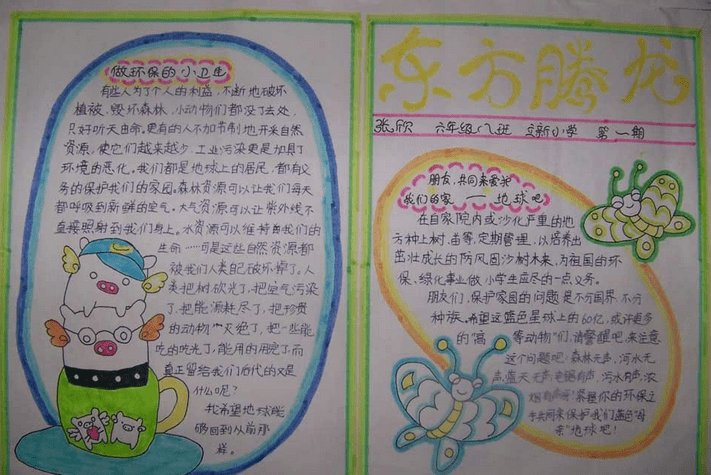 做环保的小卫生
有些人为了个人的利益，不断地破坏
植被，毁坏森林，小动物们都没了去处，
只好听天由命。更有的人不加节制地开来自然
资源，使它们越来越少，工业污染更是加具了
环境的恶化。我们都是地球上的居民，都有义
务的保护我们的家园。森林资源可以让我们每天
都呼吸到新鲜的空气。大气资源可以让紫外线不
直接照射到我们身上。水资源可以维持每我们的
生命……可是这些自然资源都
被我们人类自己破坏掉了。人
类把树砍光了，把空气污染
了，把能源耗尽了，把珍贵
的动物“灭绝了，把一些能
吃的吃光了，能用的用完了，而
真正留给我们后代的又是
什么呢？
我希望地球能
够回到从前那
样。
东方腾龙
张欣 六年级八班 立新小学 第一期
朋友，共同来爱我
我们的家——地球吧
在自家院内或沙化严重的地
方种上树、苗等，定期管理，以培养出
茁壮成长的防风固沙树木来，为祖国的环
保、绿化事业做小学生应尽的一点义务。
朋友们，保护家园的问题是不分国界，不分
种族。希望这蓝色星球上的60亿，或许更多
的“高等动物”们，请警醒吧，来注意
这个问题吧：森林无声，河水无
声，蓝天无声，电锯有声，污水有声，浓
烟有声啊！紧握你的环保之
手共同来保护我们蓝色“母
亲”地球吧！